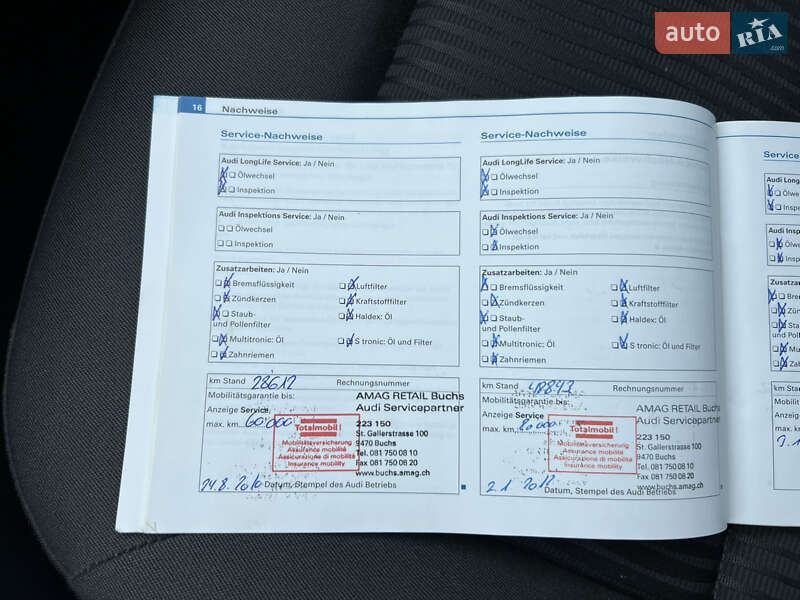 auto RIA .com
16 Nachweise
Service-Nachweise
Audi LongLife Service: Ja / Nein
Ölwechsel
Inspektion
Audi Inspektions Service: Ja / Nein
Ölwechsel
Inspektion
Zusatzarbeiten: Ja / Nein
Bremsflüssigkeit
Luftfilter
Zündkerzen
Kraftstofffilter
Staub- und Pollenfilter
Haldex: Öl
Multitronic: Öl
S tronic: Öl und Filter
Zahnriemen
km Stand 28612 Rechnungsnummer
Mobilitätsgarantie bis:
AMAG RETAIL Buchs
Audi Servicepartner
Anzeige Service,
max. km, 60.000
223 150
St. Gallerstrasse 100
9470 Buchs
Tel. 081 750 08 10
Fax 081 750 08 20
www.buchs.amag.ch
Totalmobil!
Mobilitätsversicherung
Assurance mobilité
Assicurazione di mobilità
Insurance mobility
24.8.2010 Datum, Stempel des Audi Betriebs
Service-Nachweise
Audi LongLife Service: Ja / Nein
Ölwechsel
Inspektion
Audi Inspektions Service: Ja / Nein
Ölwechsel
Inspektion
Zusatzarbeiten: Ja / Nein
Bremsflüssigkeit
Luftfilter
Zündkerzen
Kraftstofffilter
Staub- und Pollenfilter
Haldex: Öl
Multitronic: Öl
S tronic: Öl und Filter
Zahnriemen
km Stand 48843 Rechnungsnummer
Mobilitätsgarantie bis:
AMAG RETAIL Buchs
Audi Servicepartner
Anzeige Service
max. km, 80.000
223 150
St. Gallerstrasse 100
9470 Buchs
Tel. 081 750 08 10
Fax 081 750 08 20
www.buchs.amag.ch
Totalmobil!
Mobilitätsversicherung
Assurance mobilité
Assicurazione di mobilità
Insurance mobility
2.1 2012 Datum, Stempel des Audi Betriebs
Service
Audi Long
Ölwe
Inspe
Audi Insp
Ölwe
Inspe
Zusatzarb
Brem
Zün
Stau
und Poll
Mul
Zah
km Stan
Mobilitä
Anzeige
max. km